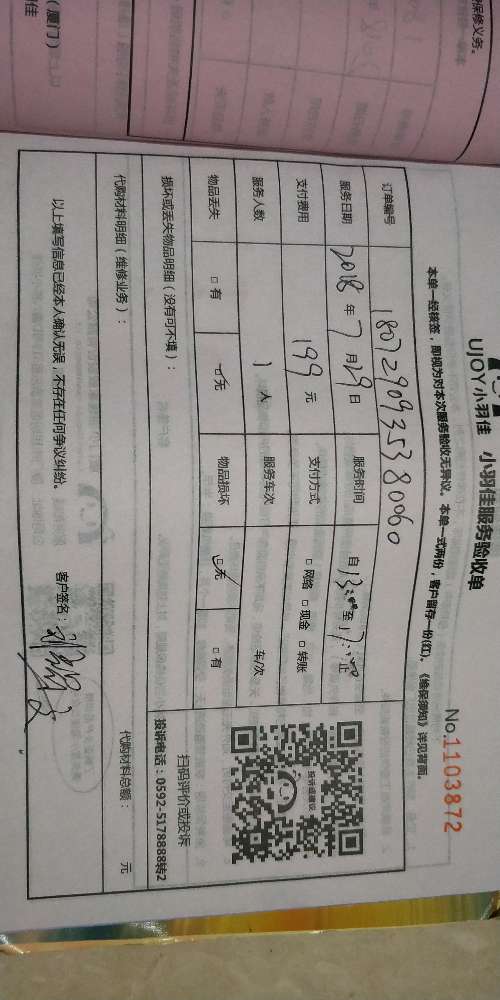 保修义务。
（厦门）
佳
UJOY小羽佳 小羽佳服务验收单
No.1103872
本单一经接签，即视为对本次服务验收无异议。本单一式两份，客户留存一份(红)。《维保须知》详见背面。
订单编号 18072909353880060
服务日期 2018 年 7 月 29 日 服务时间 自 13:00 至 17:00 止
支付费用 199 元 支付方式 □ 网络 □ 现金 □ 转账
服务人数 1 人 服务车次 车/次
物品丢失 □ 有 □ 无 物品损坏 □ 无 □ 有
投诉或建议
扫码评价或投诉
投诉电话：0592-5178888转2
损坏或丢失物品明细（没有可不填）：
代购材料明细（维修业务）： 代购材料总额： 元
以上填写信息已经本人确认无误，不存在任何争议纠纷。 客户签名：